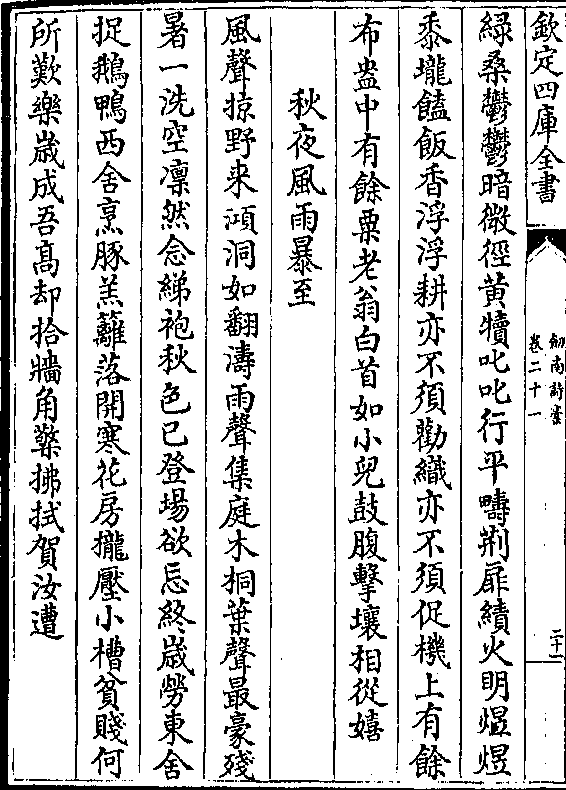 欽定四庫全書
劒南詩藁
卷二十一
二十一
緑桑鬱鬱暗微徑黄犢叱叱行平疇荆扉績火明煜煜
黍壠饁飯香浮浮耕亦不須勸織亦不須促機上有餘
布盎中有餘粟老翁白首如小兒鼓腹擊壤相從嬉
秋夜風雨暴至
風聲掠野来澒洞如翻濤雨聲集庭木桐葉聲最豪殘
暑一洗空凛然念綈袍秋色已登塲欲忘終歲勞東舍
捉鵝鴨西舍烹豚羔籬落開寒花房櫳壓小槽貧賤何
所歎樂歲成吾髙却拾牆角檠拂拭賀汝遭